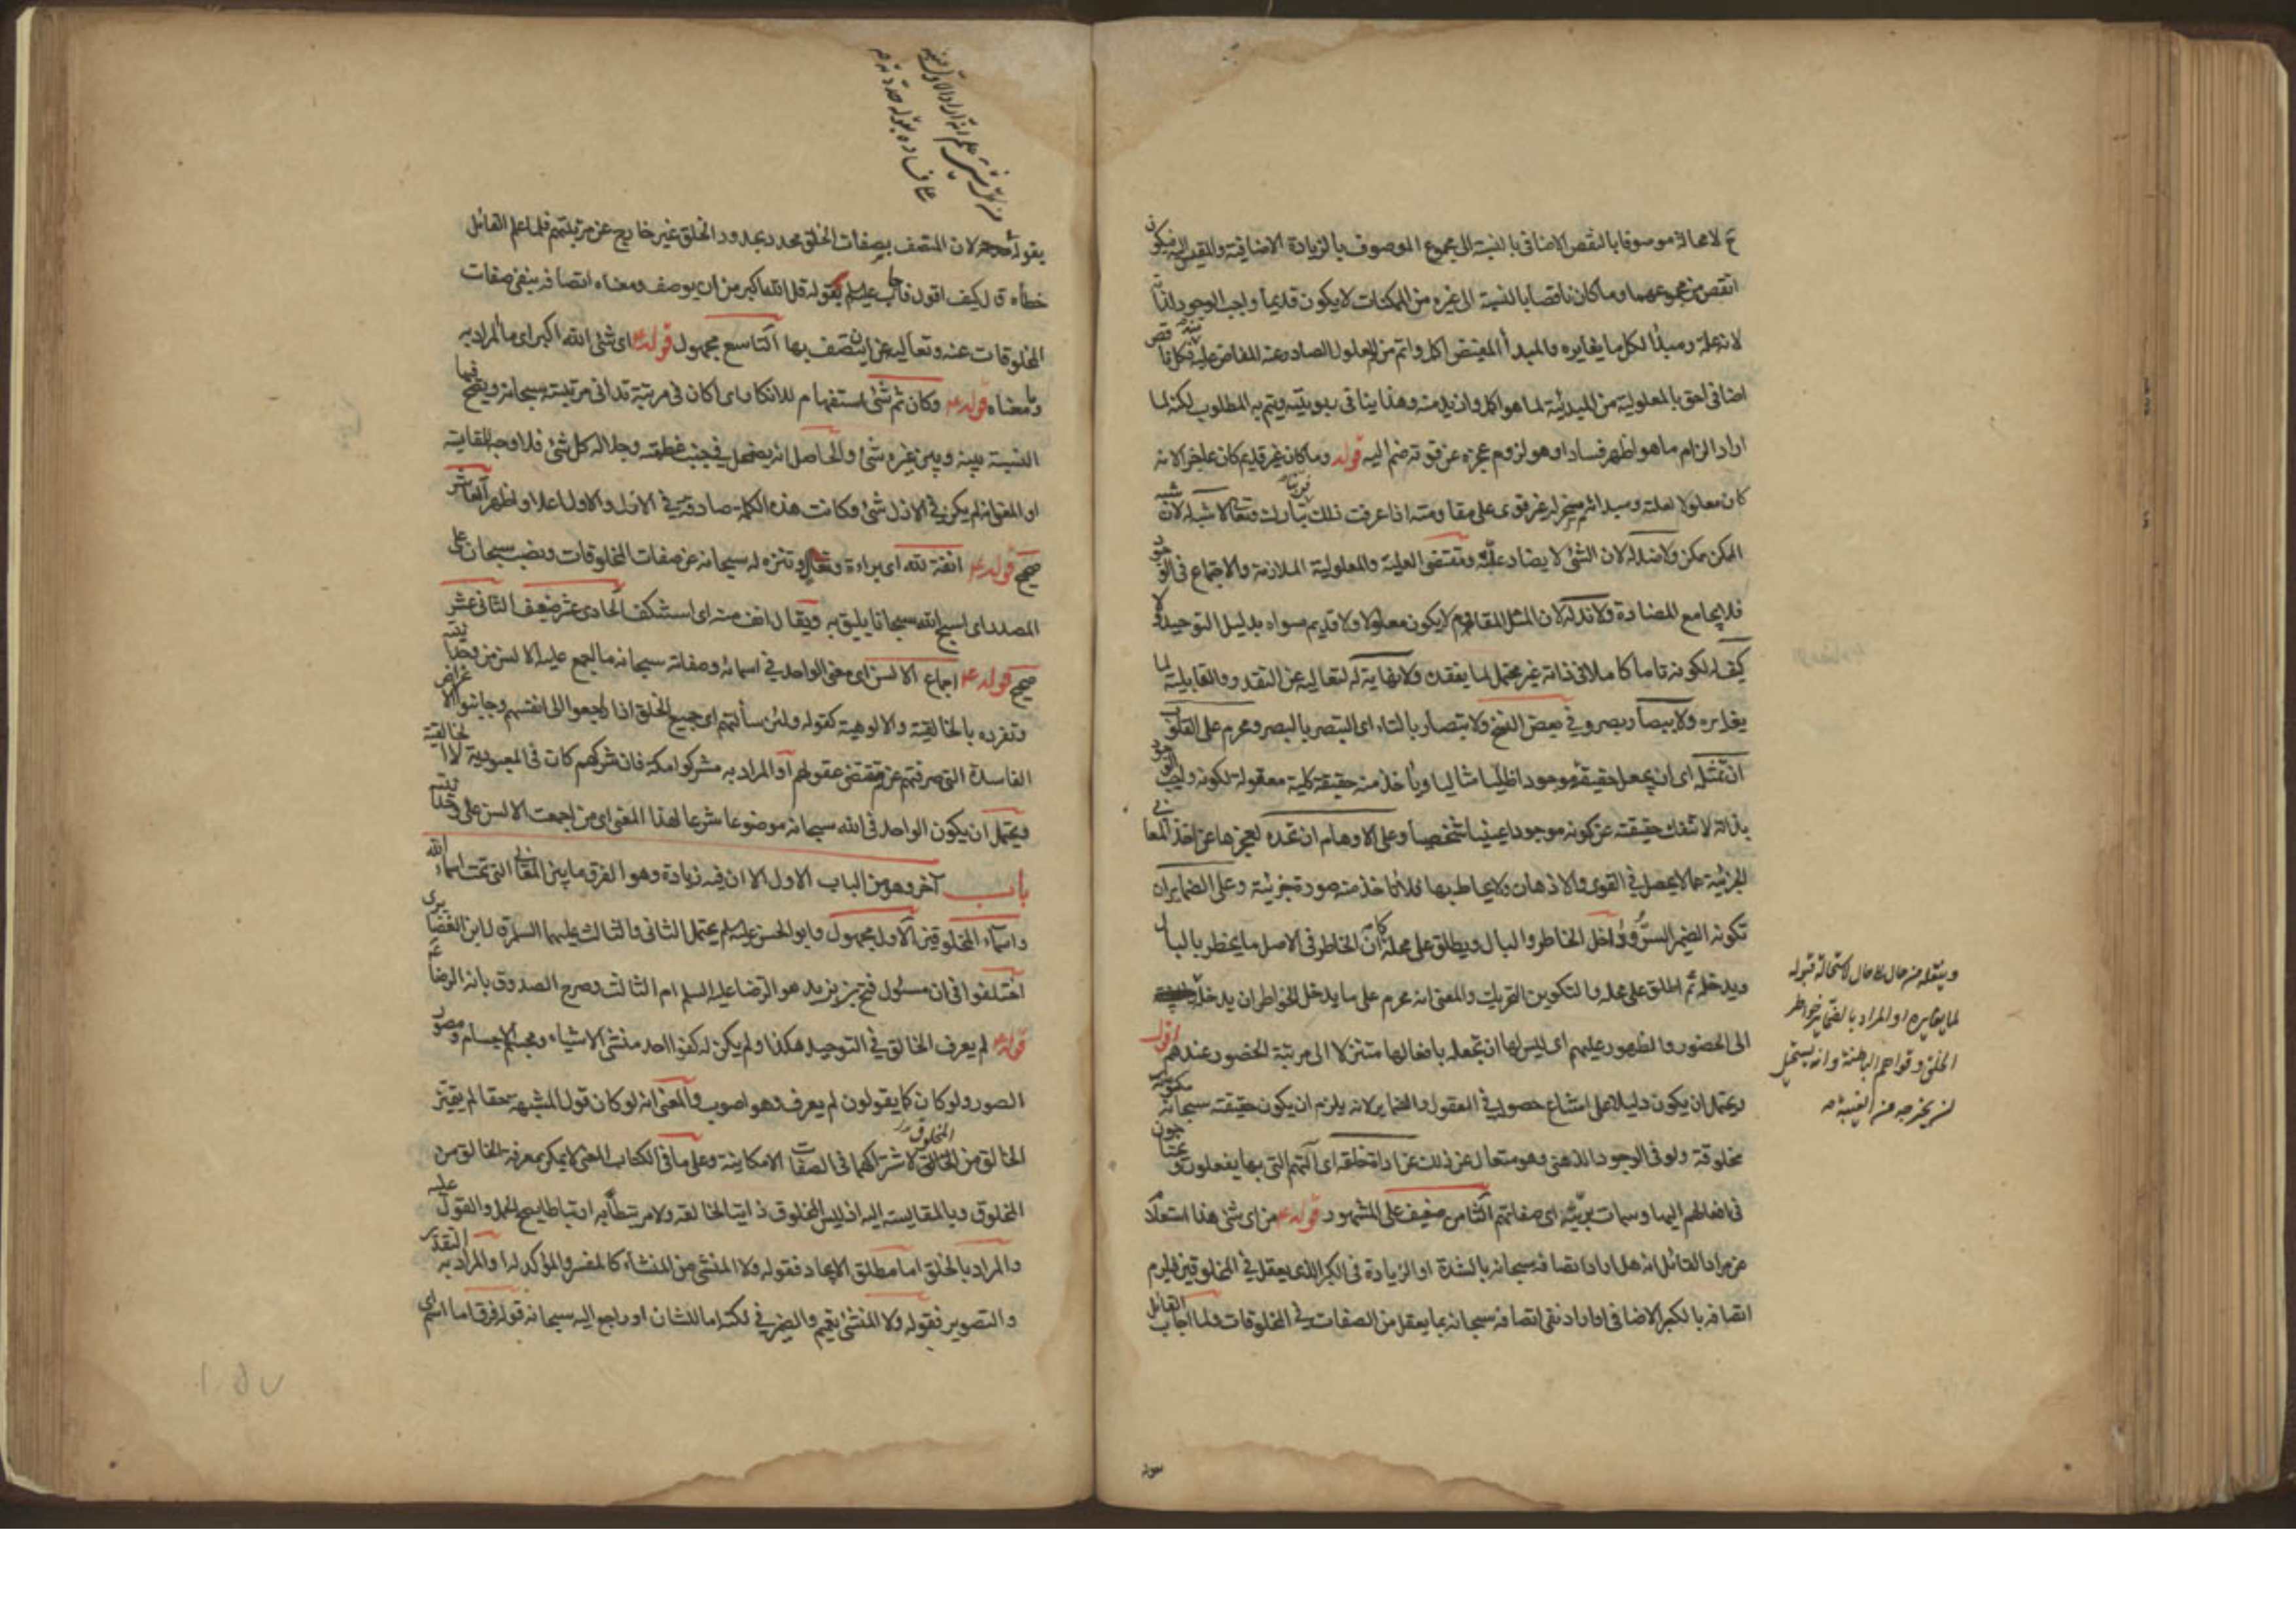 ح لا محالة موصوفا بالنقص الاضافى بالنسبة الى مجموع الموصوف بالزيادة الاضافية والمقيس اليه فيكون
انقص من مجموعهما وما كان ناقصا بالنسبة الى غيره من الممكنات لا يكون قديما واجب الوجود لذاته
لانه علة ومبدأ لكل ما يغايره والمبدأ المفيض اكمل واتم من المعلول الصادر عنه المفاض عليه فكل ناقص
اضافى احق بالمعلولية من المبدئية لما هو اكمل وازيد منه وهذا ينافى ربوبيته ويتم به المطلوب لكنه لما
اراد الزام ما هو اظهر فسادا وهو لزوم عجزه عن قوته ضم اليه قوله وما كان غير قديم كان عاجزا لانه
كان معلولا لعلته ومبدائه مسخرا له غير قوى على مقاومته اذا عرفت ذلك فربنا تبارك وتعالى لا شبه له لان شبه
الممكن ممكن ولا ضد له لان الشئ لا يضاد علته ومقتضى العلية والمعلولية الملازمة والاجتماع فى الوجود
فلا يجامع المضادة ولا ند له لان المثل المقاوم لا يكون معلولا ولا قديم سواه بدليل التوحيد ولا
كيف له لكونه تاما كاملا فى ذاته غير محتمل لما يفقده ولا نهاية له لتعاليه عن التقدر والقابلية لما
يغايره ولا يبصار بصر وفى بعض النسخ ولا بتصار بالتاء اى التبصر بالبصر ومحرم على القلوب
ان تمثله اى ان يجعل حقيقته موجودا ظليا مثاليا ويأخذ منه حقيقة كلية معقولة لكونه واجب الوجود
بذاته لا تنفك حقيقته عن كونه موجودا عينيا شخصيا وعلى الاوهام ان تحده لعجزها عن اخذ المعانى
الجزئية عما لا يحصل فى القوى والاذهان ولا يحاط بها فلا تاخذ منه صورة جزئية وعلى الضماير ان
تكونه الضمير السر وداخل الخاطر والبال ويطلق على محله كما ان الخاطر فى الاصل ما يخطر بالبال
ويدخله ثم اطلق على محله والتكوين التحريك والمعنى انه محرم على ما يدخل الخواطر ان يدخله
الى الحضور والظهور عليهم اى ليس لها ان تجعله بافعالها متنزلا الى مرتبة الحضور عندهم اقول
ويحتمل ان يكون دليلا على امتناع حصوله فى العقول والضماير لانه يلزم ان يكون حقيقته سبحانه مكونة
مخلوقة ولو فى الوجود الذهنى وهو متعال عن ذلك عن اداة خلقه اى آلتهم التى بها يفعلون ويحتاجون
فى افعالهم اليها وسمات بريته اى صفاتهم الثامن ضعيف على المشهور قوله ع من اى شئ هذا استعلام
عن مراد القائل انه هل اراد اتصافه سبحانه بالشدة او الزيادة فى الكبر الذى يعقل فى المخلوقين فيلزم
اتصافه بالكبر الاضافى او اراد نفى اتصافه سبحانه بما يعقل من الصفات فى المخلوقات ولما اجاب القائل
وينقله من حال الى حال لاستحالة قبوله
لما يغايره او المراد بالضماير خواطر
الخلق وقواهم الباطنة وانه يستحيل
ان يخرجه من الغيبة
بقوله لان المتصف بصفات الخلق محدد بحدود الخلق غير خارج عن مرتبتهم فلما علم القائل
خطأه قال كيف اقول فاجاب عليه السلم بقوله قل الله اكبر من ان يوصف ومعناه اتصافه بنفى صفات
المخلوقات عنه وتعاليه عن ان يتصف بها التاسع مجهول قوله ع اى شئ الله اكبر اى ما المراد به
وما معناه قوله ع وكان ثم شئ استفهام للانكار اى أكان فى مرتبة تدانى مرتبته سبحانه ويصح فيها
النسبة بينه وبين غيره شئ والحاصل انه يضمحل فى جنب عظمته وجلاله كل شئ فلا وجه للمقايسة
او المعنى انه لم يكن فى الازل شئ وكانت هذه الكلمة صادقة فى الازل والاول اعلا واظهر العاشر
صحيح قوله ع انفة لله اى براءة وتعال وتنزه له سبحانه عن صفات المخلوقات ونصب سبحان على
المصدر اى اسبح الله سبحانا يليق به ويقال انف منه اى استنكف الحادى عشر ضعيف الثانى عشر
صحيح قوله ع اجماع الالسن اى معنى الواحد فى اسمائه وصفاته سبحانه ما اجمع عليه الالسن من وحدانيته
وتفرده بالخالقية والالوهية كقوله ولئن سألتهم اى جميع الخلق اذا راجعوا الى انفسهم وجانبوا الاغراض
الفاسدة التى صرفتهم عن مقتضى عقولهم او المراد به مشركوا مكة فان شركهم كان فى المعبودية لا الخالقية
ويحتمل ان يكون الواحد فى الله سبحانه موضوعا شرعا لهذا المعنى اى من اجمعت الالسن على وحدانيته
باب آخر وهو من الباب الاول الا ان فيه زيادة وهو الفرق ما بين المعانى التى تحت اسماء الله
واسماء المخلوقين الاول مجهول وابو الحسن عليه السلم يحتمل الثانى والثالث عليهما السلم قال ابن الغضايرى
اختلفوا فى ان مسئول فتح بن يزيد هو الرضا عليه السلم ام الثالث وصرح الصدوق بانه الرضا ع
قوله ع لم يعرف الخالق فى التوحيد هكذا ولم يكن له كفوا احد منشئ الاشياء ومجسم الاجسام ومصور
الصور ولو كان كما يقولون لم يعرف وهو اصوب والمعنى انه لو كان قول المشبهة حقا لم يتميز
الخالق من المخلوق لاشتراكهما فى الصفات الامكانية وعلى ما فى الكتاب المعنى لا يمكن معرفة الخالق من
المخلوق وبالمقايسة اليه اذ ليس المخلوق ذاتيا لخالقه ولا مرتبطا به ارتباطا يصح الحمل والقول عليه
والمراد بالخلق اما مطلق الايجاد فقوله ولا المنشئ من المنشاء كالمفسر والمؤكد له او المراد به التقدير
والتصوير فقوله ولا المنشئ تعميم والضمير فى لكنه اما للشان او راجع اليه سبحانه قوله فرق اما اسم اى